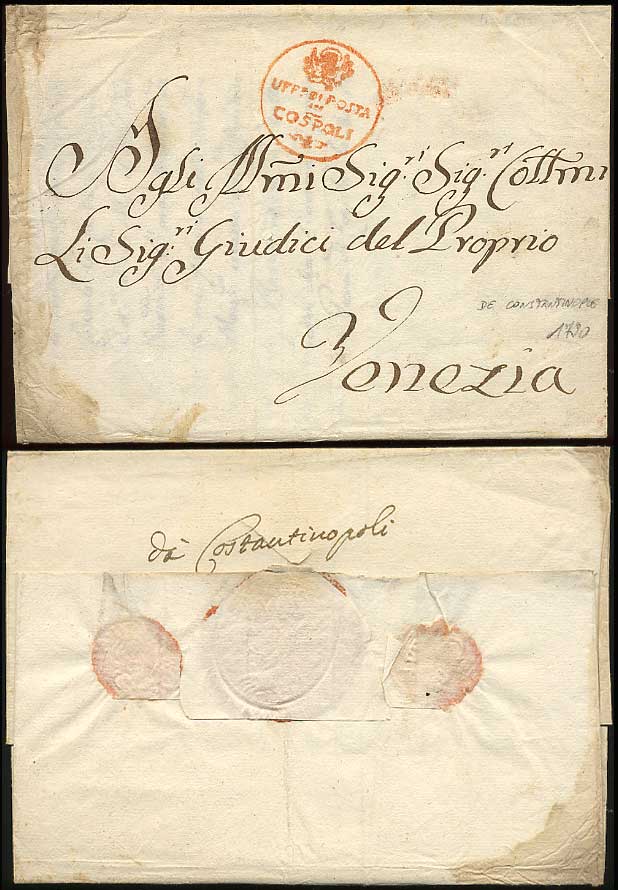 UFF° DI POSTA
in
COSPOLI
Agli Ill̄mi Sig.ri Sig.ri Coll̄mi
Li Sig.ri Giudici del Proprio
DE CONSTANTINOPLE
1790
Venezia
da Costantinopoli